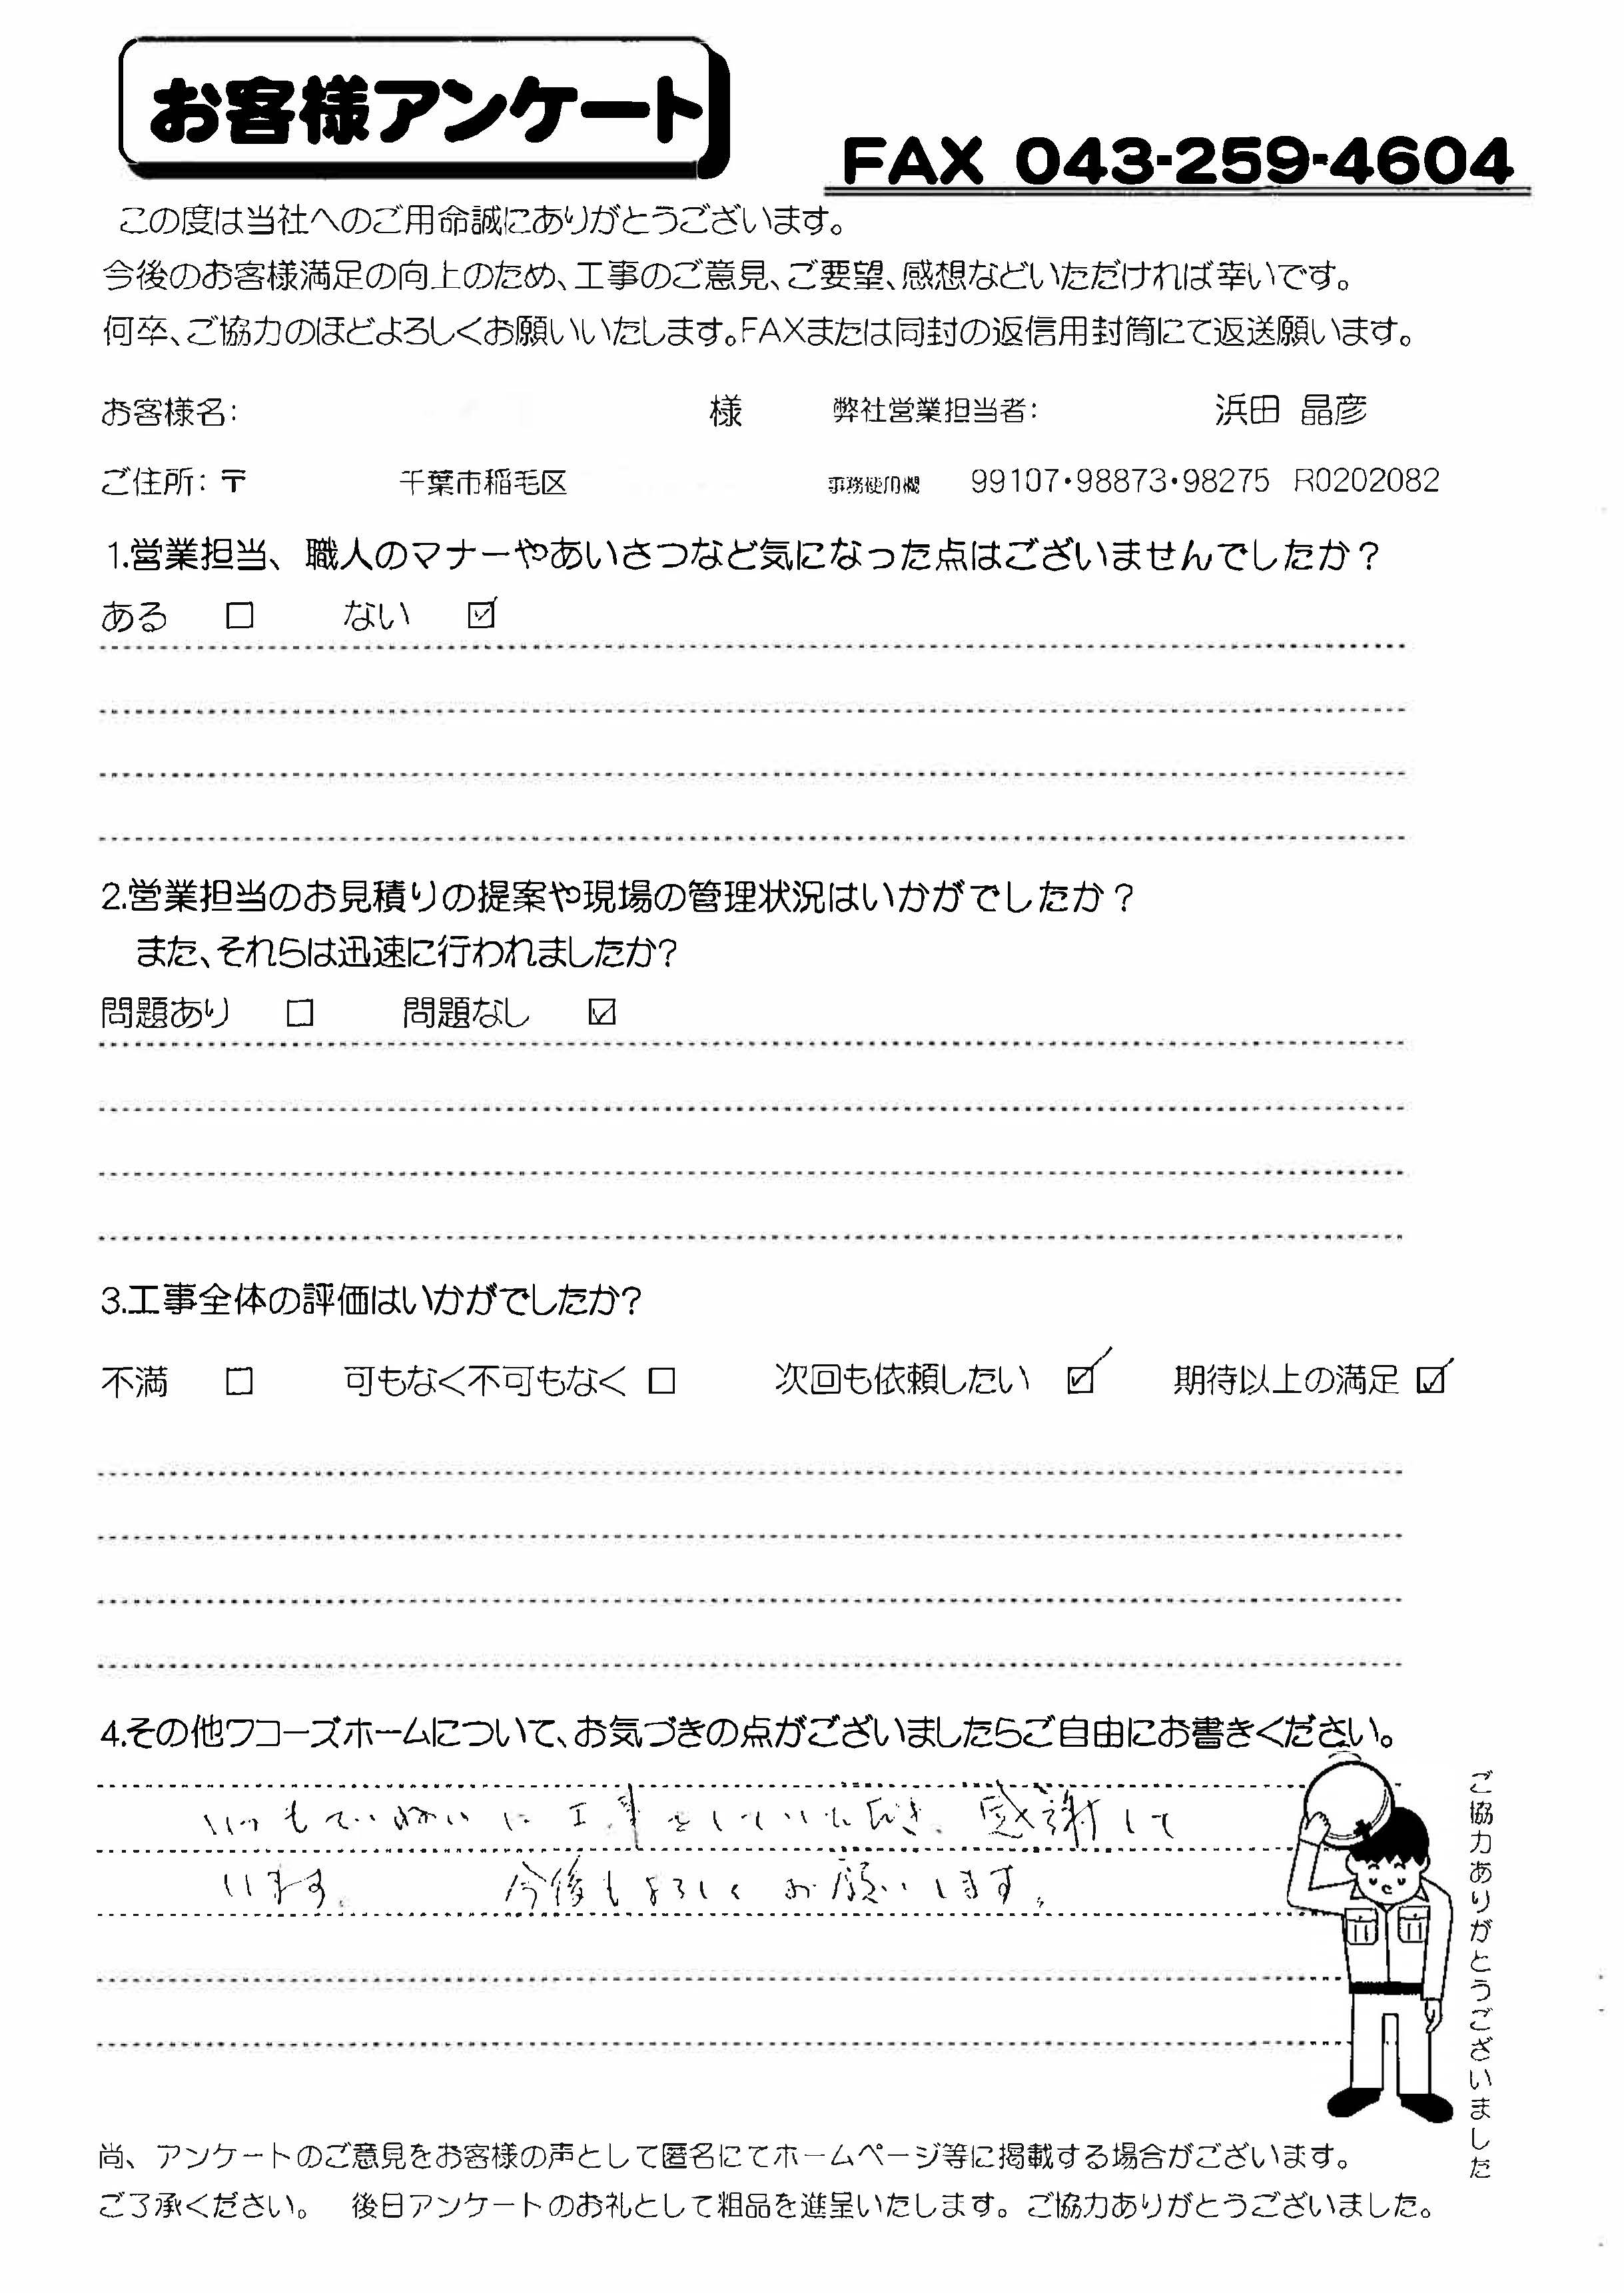 お客様アンケート
FAX 043-259-4604
この度は当社へのご用命誠にありがとうございます。
今後のお客様満足の向上のため、工事のご意見、ご要望、感想などいただければ幸いです。
何卒、ご協力のほどよろしくお願いいたします。FAXまたは同封の返信用封筒にて返送願います。
お客様名: 様 弊社営業担当者: 浜田 晶彦
ご住所:〒 千葉市稲毛区 事務使用欄 99107・98873・98275 R0202082
1.営業担当、職人のマナーやあいさつなど気になった点はございませんでしたか？
ある □ ない ☑
2.営業担当のお見積りの提案や現場の管理状況はいかがでしたか？
また、それらは迅速に行われましたか?
問題あり □ 問題なし ☑
3.工事全体の評価はいかがでしたか?
不満 □ 可もなく不可もなく □ 次回も依頼したい ☑ 期待以上の満足 ☑
4.その他ワコーズホームについて、お気づきの点がございましたらご自由にお書きください。
いつもていねいに工事をしていただき、感謝して
います。 今後もよろしくお願いします。
ご協力ありがとうございました
尚、アンケートのご意見をお客様の声として匿名にてホームページ等に掲載する場合がございます。
ご了承ください。 後日アンケートのお礼として粗品を進呈いたします。ご協力ありがとうございました。